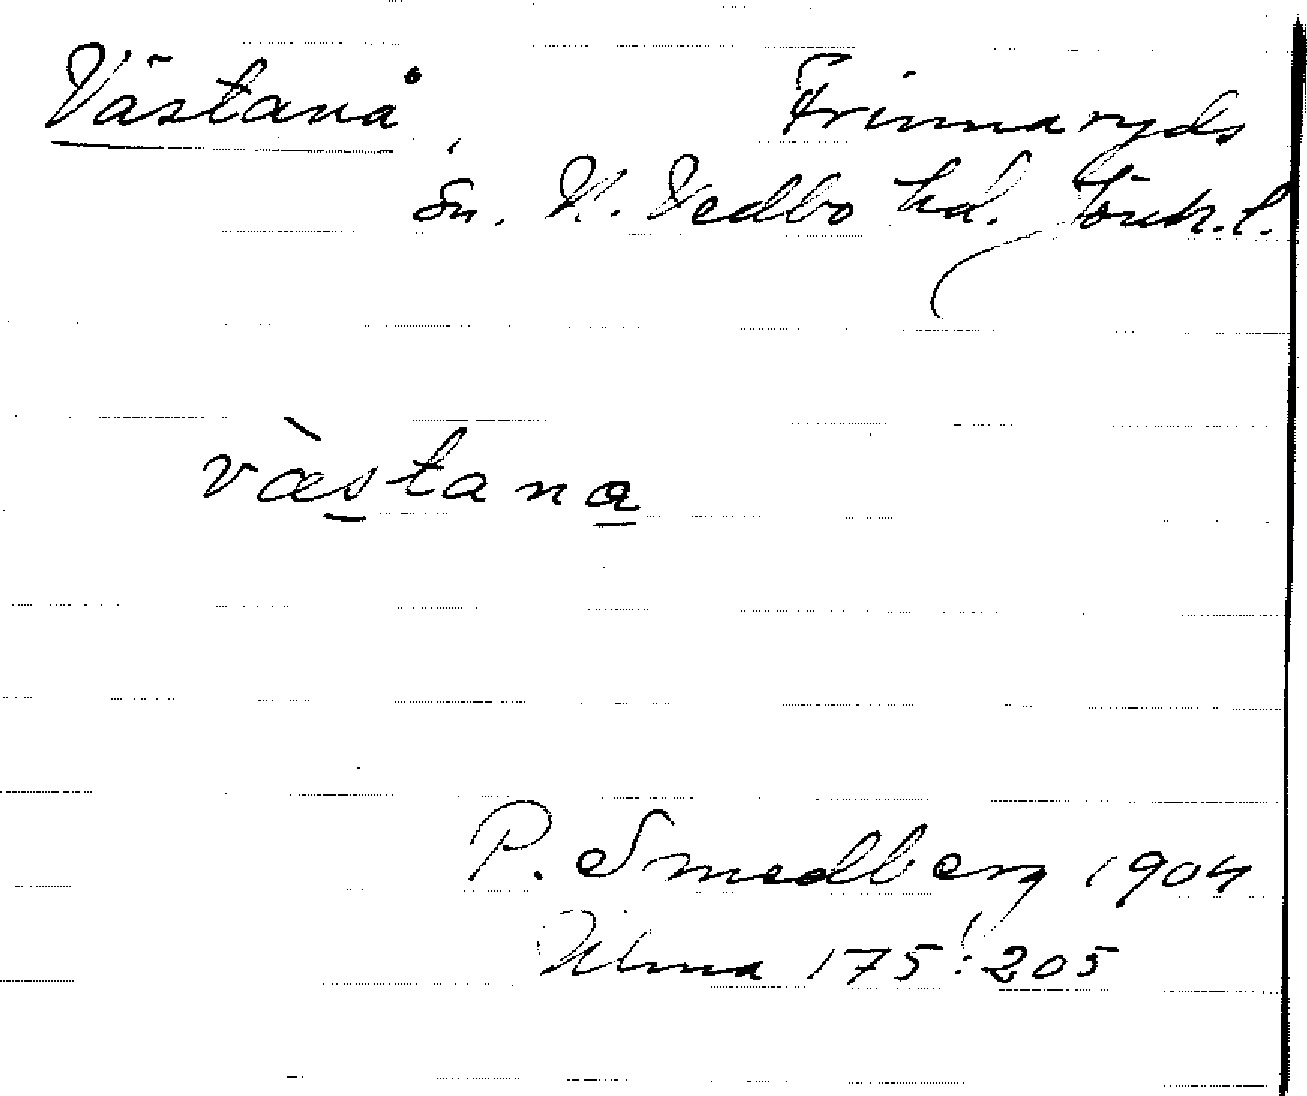 Västanå Frinnaryds
sn. N. Vedbo hd. Jönk. l.
vàstana
P. Smedberg 1904
Ulma 175:205